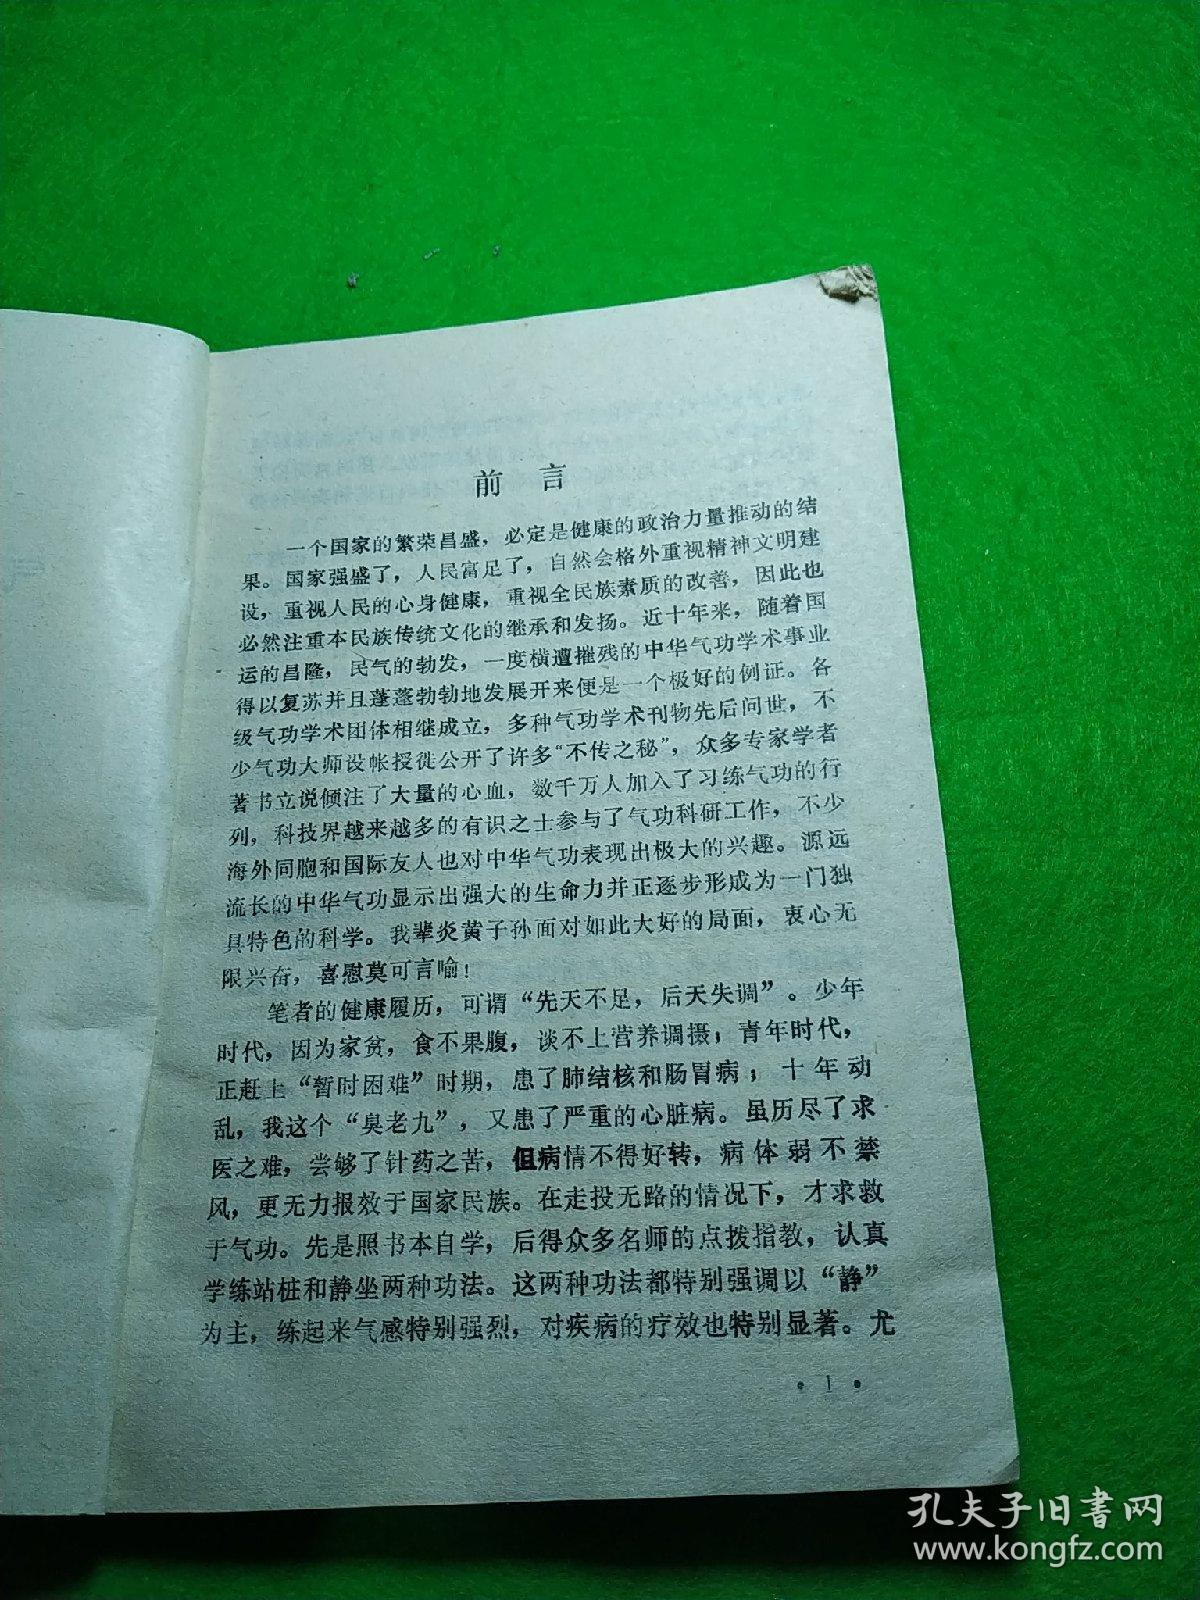 前言
一个国家的繁荣昌盛，必定是健康的政治力量推动的结
果。国家强盛了，人民富足了，自然会格外重视精神文明建
设，重视人民的心身健康，重视全民族素质的改善，因此也
必然注重本民族传统文化的继承和发扬。近十年来，随着国
运的昌隆，民气的勃发，一度横遭摧残的中华气功学术事业
得以复苏并且蓬蓬勃勃地发展开来便是一个极好的例证。各
级气功学术团体相继成立，多种气功学术刊物先后问世，不
少气功大师设帐授徒公开了许多“不传之秘”，众多专家学者
著书立说倾注了大量的心血，数千万人加入了习练气功的行
列，科技界越来越多的有识之士参与了气功科研工作，不少
海外同胞和国际友人也对中华气功表现出极大的兴趣。源远
流长的中华气功显示出强大的生命力并正逐步形成为一门独
具特色的科学。我辈炎黄子孙面对如此大好的局面，衷心无
限兴奋，喜慰莫可言喻！
笔者的健康履历，可谓“先天不足，后天失调”。少年
时代，因为家贫，食不果腹，谈不上营养调摄；青年时代，
正赶上“暂时困难”时期，患了肺结核和肠胃病；十年动
乱，我这个“臭老九”，又患了严重的心脏病。虽历尽了求
医之难，尝够了针药之苦，但病情不得好转，病体弱不禁
风，更无力报效于国家民族。在走投无路的情况下，才求救
于气功。先是照书本自学，后得众多名师的点拨指教，认真
学练站桩和静坐两种功法。这两种功法都特别强调以“静”
为主，练起来气感特别强烈，对疾病的疗效也特别显著。尤
• 1 •
孔夫子旧书网
www.kongfz.com